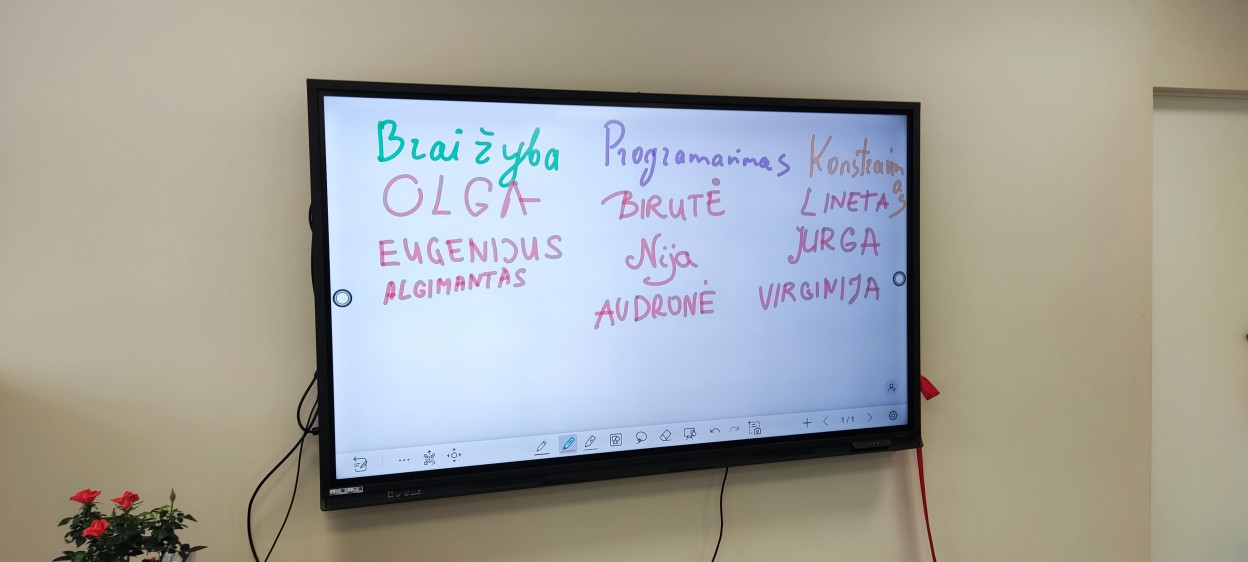 Braižyba Programavimas Konstravimas
OLGA BIRUTĖ LINETA
EUGENIJUS Nija JURGA
ALGIMANTAS AUDRONĖ VIRGINIJA
1/1